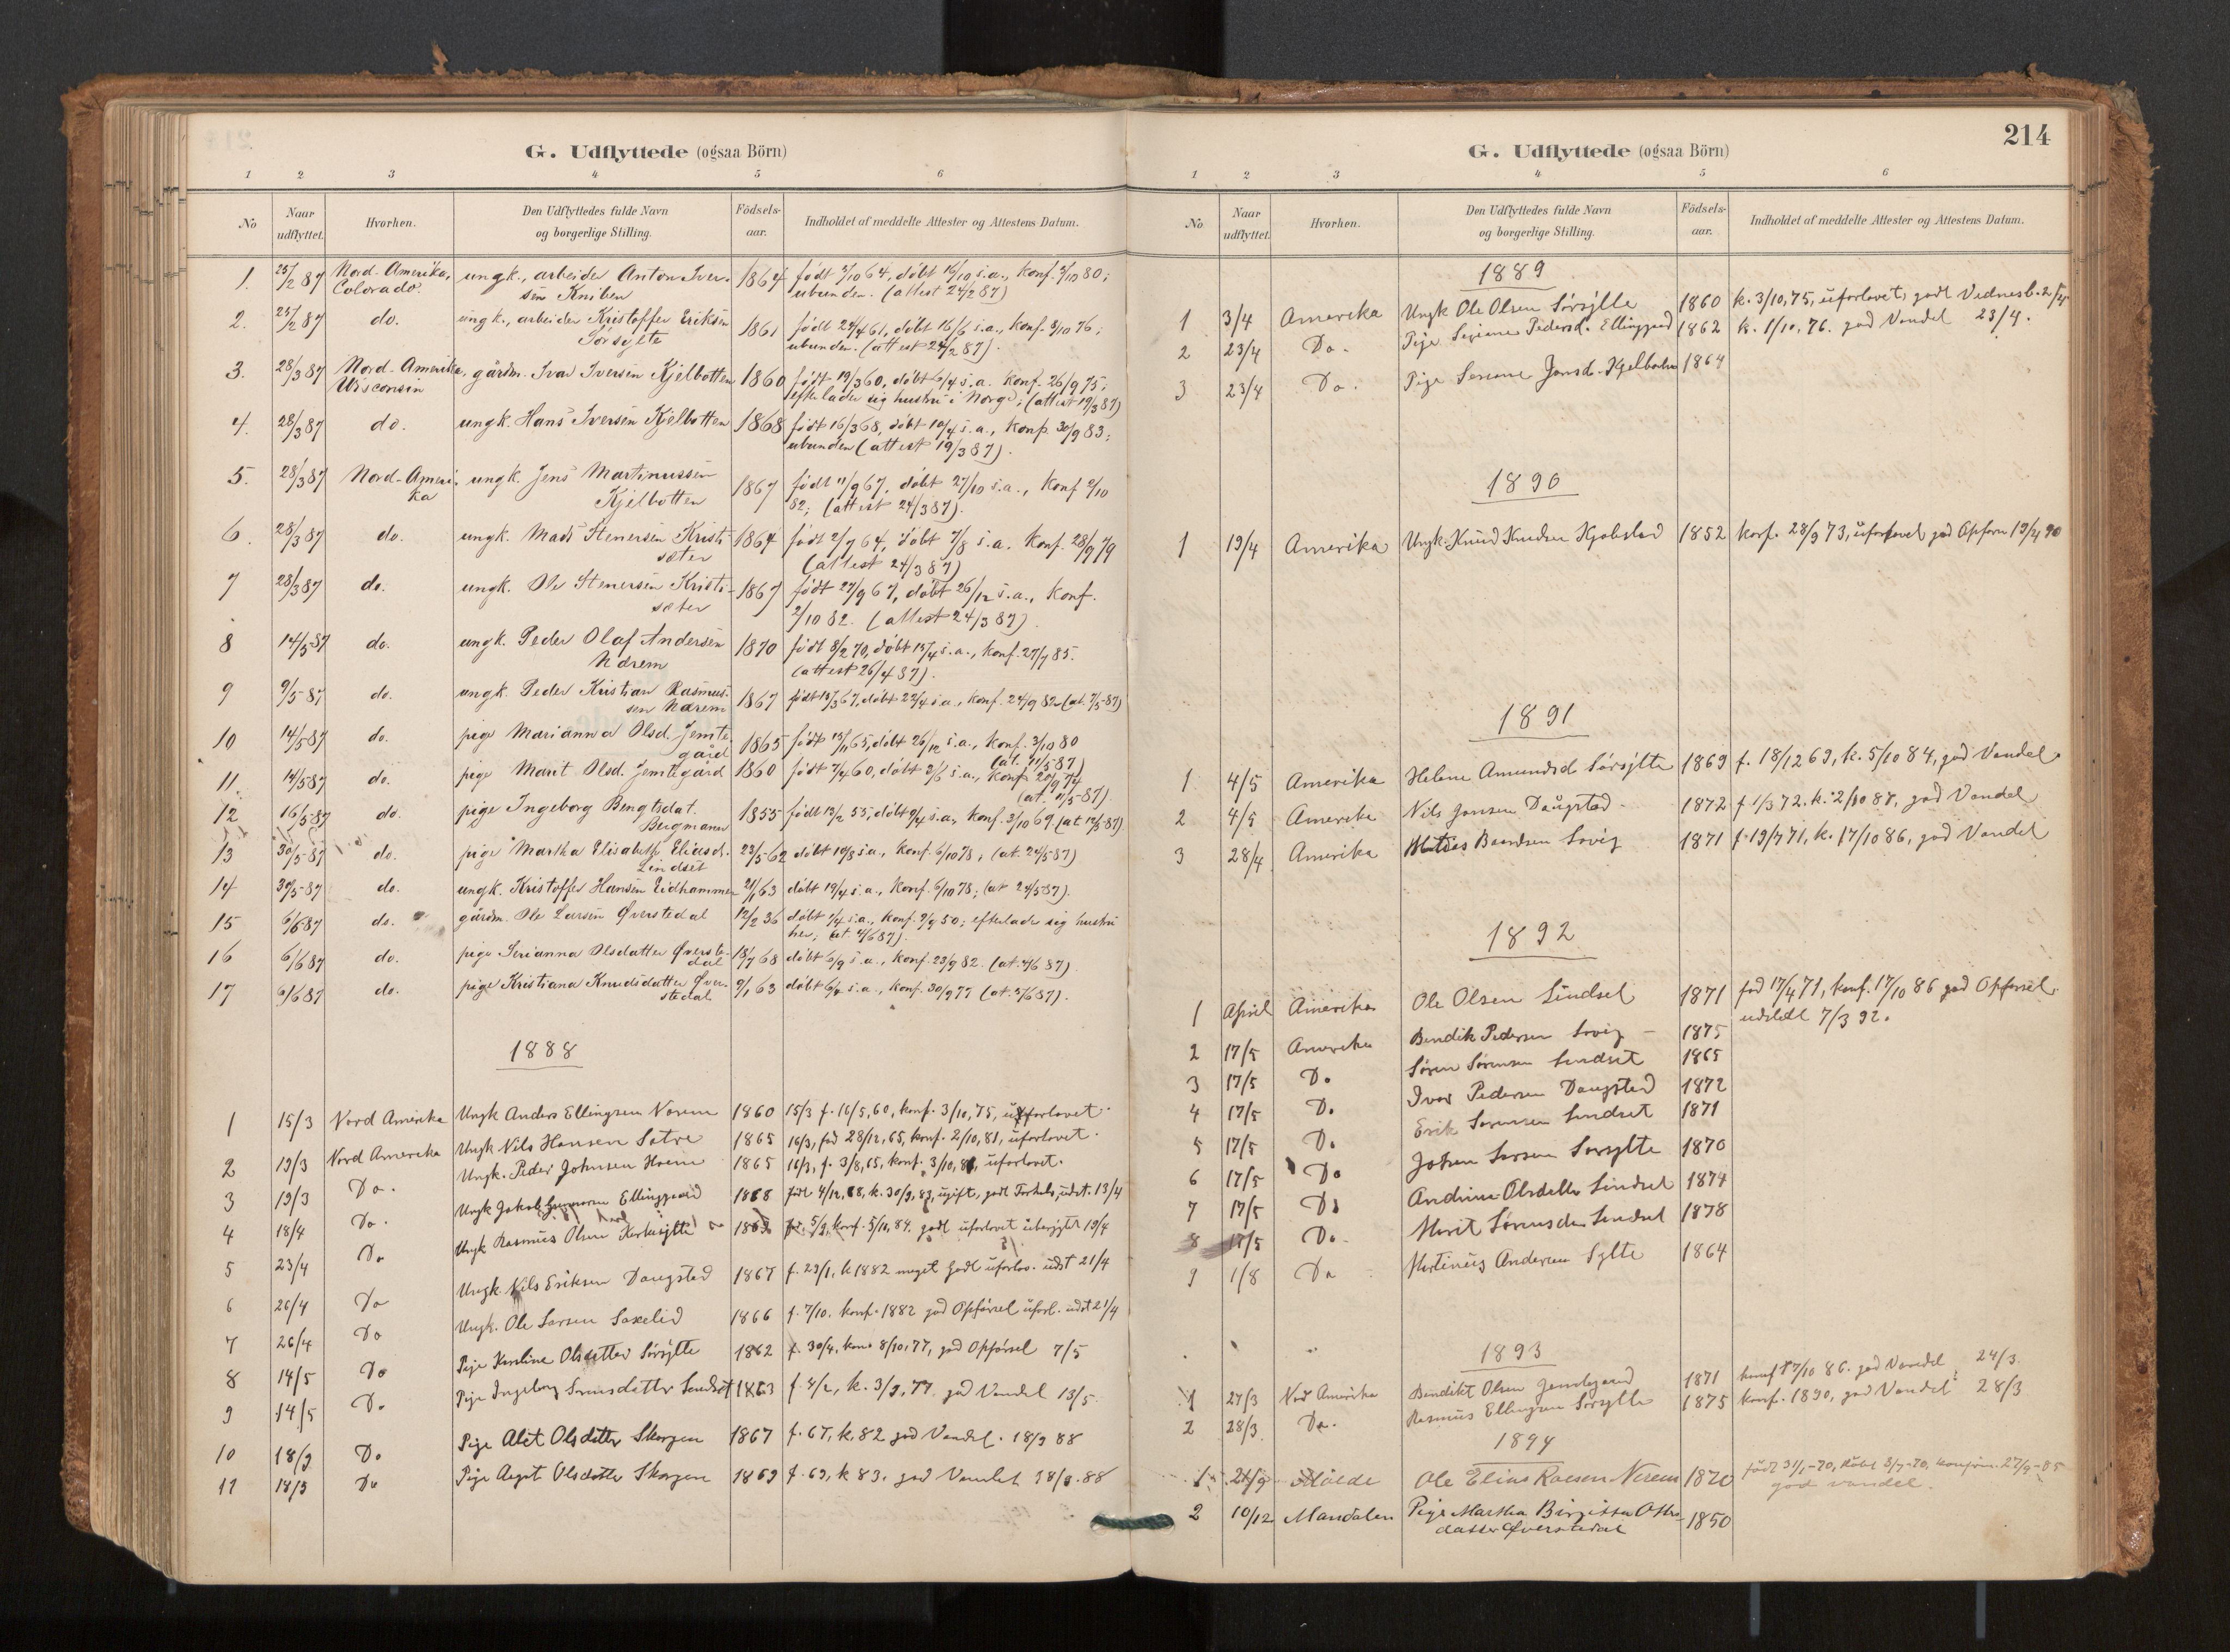 G. Udflyttede (ogsaa Börn)
1 2 3 4 5 6
No Naar udflyttet. Hvorhen. Den Udflyttedes fulde Navn og borgerlige Stilling. Födsels-aar. Indholdet af meddelte Attester og Attestens Datum.
1. 25/2 87 Nord-Amerika, ungk., arbeider Anton Iver- 1864 født 3/10 64, døbt 16/10 s.a., konf. 3/10 80;
Colorado. sen Kniben ubunden. (attest 24/2 87)
2. 25/2 87 do. ungk., arbeider Kristoffer Eriksen 1861 født 24/4 61, døbt 16/6 s.a., konf. 8/10 76;
Sørsylte ubunden. (attest 24/2 87).
3. 28/3 87 Nord-Amerika, gårdm. Ivar Iversen Kjelbotten 1860 født 19/3 60, døbt 6/4 s.a. konf. 26/9 75;
Wisconsin efterlader sig hustru i Norge; (attest 19/3 87)
4. 28/3 87 do. ungk. Hans Iversen Kjelbotten 1868 født 16/3 68, døbt 10/4 s.a., konf. 30/9 83;
ubunden (attest 19/3 87).
5. 28/3 87 Nord-Ameri- ungk. Jens Martinussen 1867 født 11/9 67, døbt 27/10 s.a., konf 2/10
ka Kjelbotten 82; (attest 24/3 87).
6. 28/3 87 do. ungk. Mads Stenersen Kristi- 1864 født 2/7 64, døbt 7/8 s.a. konf. 28/9 79
sæter (attest 24/3 87)
7 28/3 87 do. ungk. Ole Stenersen Kristi- 1867 født 27/9 67, døbt 26/12 s.a., konf.
sæter 2/10 82. (attest 24/3 87).
8 14/5 87 do. ungk. Peder Olaf Andersen 1870 født 8/2 70, døbt 15/4 s.a., konf. 27/9 85.
Nærem (attest 26/4 87).
9 9/5 87 do. ungk. Peder Kristian Rasmus- 1867 født 13/3 67, døbt 22/4 s.a., konf. 24/9 82 (at. 7/5 87)
sen Nærem
10 14/5 87 do. pige Marianna Olsd. Jemte- 1865 født 15/11 65, døbt 26/12 s.a., konf. 3/10 80
gård (at. 11/5 87)
11. 14/5 87 do. pige Marit Olsd. Jemtegård 1860 født 7/4 60, døbt 3/6 s.a., konf 20/9 74
(at. 11/5 87).
12 16/5 87 do. pige Ingeborg Bengtsdat. 1855 født 13/2 55, døbt 9/4 s.a., konf. 3/10 69. (at. 12/5 87)
Bergmann
13 30/5 87 do. pige Martha Elisabeth Eliasd. 23/5 62 døbt 10/8 s.a., konf. 6/10 78; (at. 24/5 87)
Lindset
14 30/5 87 do. ungk. Kristoffer Hansen Eidhammer 21/1 63 døbt 19/4 s.a., konf. 6/10 78; (at 24/5 87).
15 6/6 87 do. gårdm. Ole Larsen Øverstedal 12/2 36 døbt 1/4 s.a., konf. 9/9 50; efterlader sig hustru
her; (at. 4/6 87)
16 6/6 87 do. pige Serianna Olsdatter Øverste- 18/7 68 døbt 6/9 s.a., konf. 23/9 82. (at. 4/6 87)
dal
17 6/6 87 do. pige Kristiana Knudsdatter Øver- 9/1 63 døbt 6/4 s.a., konf. 30/9 77 (at. 5/6 87).
stedal
1888
1 15/3 Nord Amerika Ungk Anders Ellingsen Norem 1860 15/3 f. 16/5,60, konf. 3/10,75, uforlovet.
2 19/3 Nord Amerika Ungk Nils Hansen Sotre 1865 16/3, fød 28/12,65, konf. 2/10,81, uforlovet.
3 19/3 Do. Ungk. Peder Johnsen Hoem 1865 16/3, f. 3/8,65, konf. 3/10, uforlovet.
4 18/4 Do. Ungk Jakob Ellinggaard 1868 født 4/12,68, k. 30/9,83, ugift, godt Forhold, udst. 13/4
5 23/4 Do Ungk Rasmus Olsen 5/9, konf. 5/10,84. godt uforlovet 19/4
6 26/4 Do Ungk. Nils Eriksen Dougstad 1867 f. 29/1, k 1882 meget godt uforlov. udst 21/4
7 26/4 Do Ungk. Ole Larsen Saxelid 1866 f. 7/10. konf. 1882 god Opførsel uforl. udst 21/4
8 14/5 Do Pige Karoline Olsdatter Sørsylte 1862 f. 30/4, konf 8/10,77, god Opførsel 7/5
9 14/5 Do Pige Ingeborg Lindset 1863 f. 4/2, k. 3/9,77. god Vandel 13/5.
10 18/9 Do Pige Alet Olsdatter Skorgen 1867 f. 67, k. 82 god Vandel. 18/9 88
11 18/9 Do Pige Olsdatter Skorgen 1869 f. 69, k 83. god Vandel 18/9. 88
214
G. Udflyttede (ogsaa Börn)
1 2 3 4 5 6
No Naar udflyttet. Hvorhen. Den Udflyttedes fulde Navn og borgerlige Stilling. Födsels-aar. Indholdet af meddelte Attester og Attestens Datum.
1889
1 3/4 Amerika Ungk Ole Olsen Sørsylte 1860 k. 3/10,75, uforlovet, godt Vidnesb. 2/4
2 23/4 Do. Pige Pedersd. Ellinggaard 1862 k. 1/10,76. god Vandel 23/4.
3 23/4 Do. Pige Jonsd. Kjelbotn 1864
1890
1 19/4 Amerika Ungk. Knud Knudsen 1852 konf. 28/9 73, uforlovet god Opførs 19/4 90
1891
1 4/5 Amerika Helene Amundsd Sørsylte 1869 f. 18/12 69, k. 5/10 84, god Vandel.
2 4/5 Amerika Nils Jonsen Daugstad 1872 f 1/3 72. k. 2/10 87, god Vandel
3 28/4 Amerika Baardsen Sovig 1871 f. 19/7 71, k. 17/10 86, god Vandel
1892
1 April Amerika Ole Olsen Lindset 1871 fød 17/4 71, konf. 17/10 86 god Opførsel
udstedt 7/3 92.
2 17/5 Amerika Bendik Pedersen Sovig 1875
3 17/5 Do Søren Sørensen Lindset 1865
4 17/5 Do Ivar Pedersen Daugstad 1872
5 17/5 Do Erik Sørensen Lindset 1871
6 17/5 Do Johan Larsen Sørsylte 1870
7 17/5 Do Andrine Olsdatter Lindset 1874
8 17/5 Do. Marit Sørensdtr Lindset 1878
9 1/8 Do Martinus Andersen Sylte 1864
1893
1 27/3 Nord Amerika Bendikt Olsen Jemtegaard 1871 konf 17/10 86. god Vandel 24/3
2 28/3 Do. Rasmus Ellingsen Sørsylte 1875 konf. 1890, god Vandel 28/3
1894
1 21/9 Molde Ole Elias Nerem 1870 født 31/1-70, døbt 3/7-70, konfirm. 27/9-85
god vandel.
2 10/12 Mandalen Pige Martha Birgitta
datter Øverstedal 1850